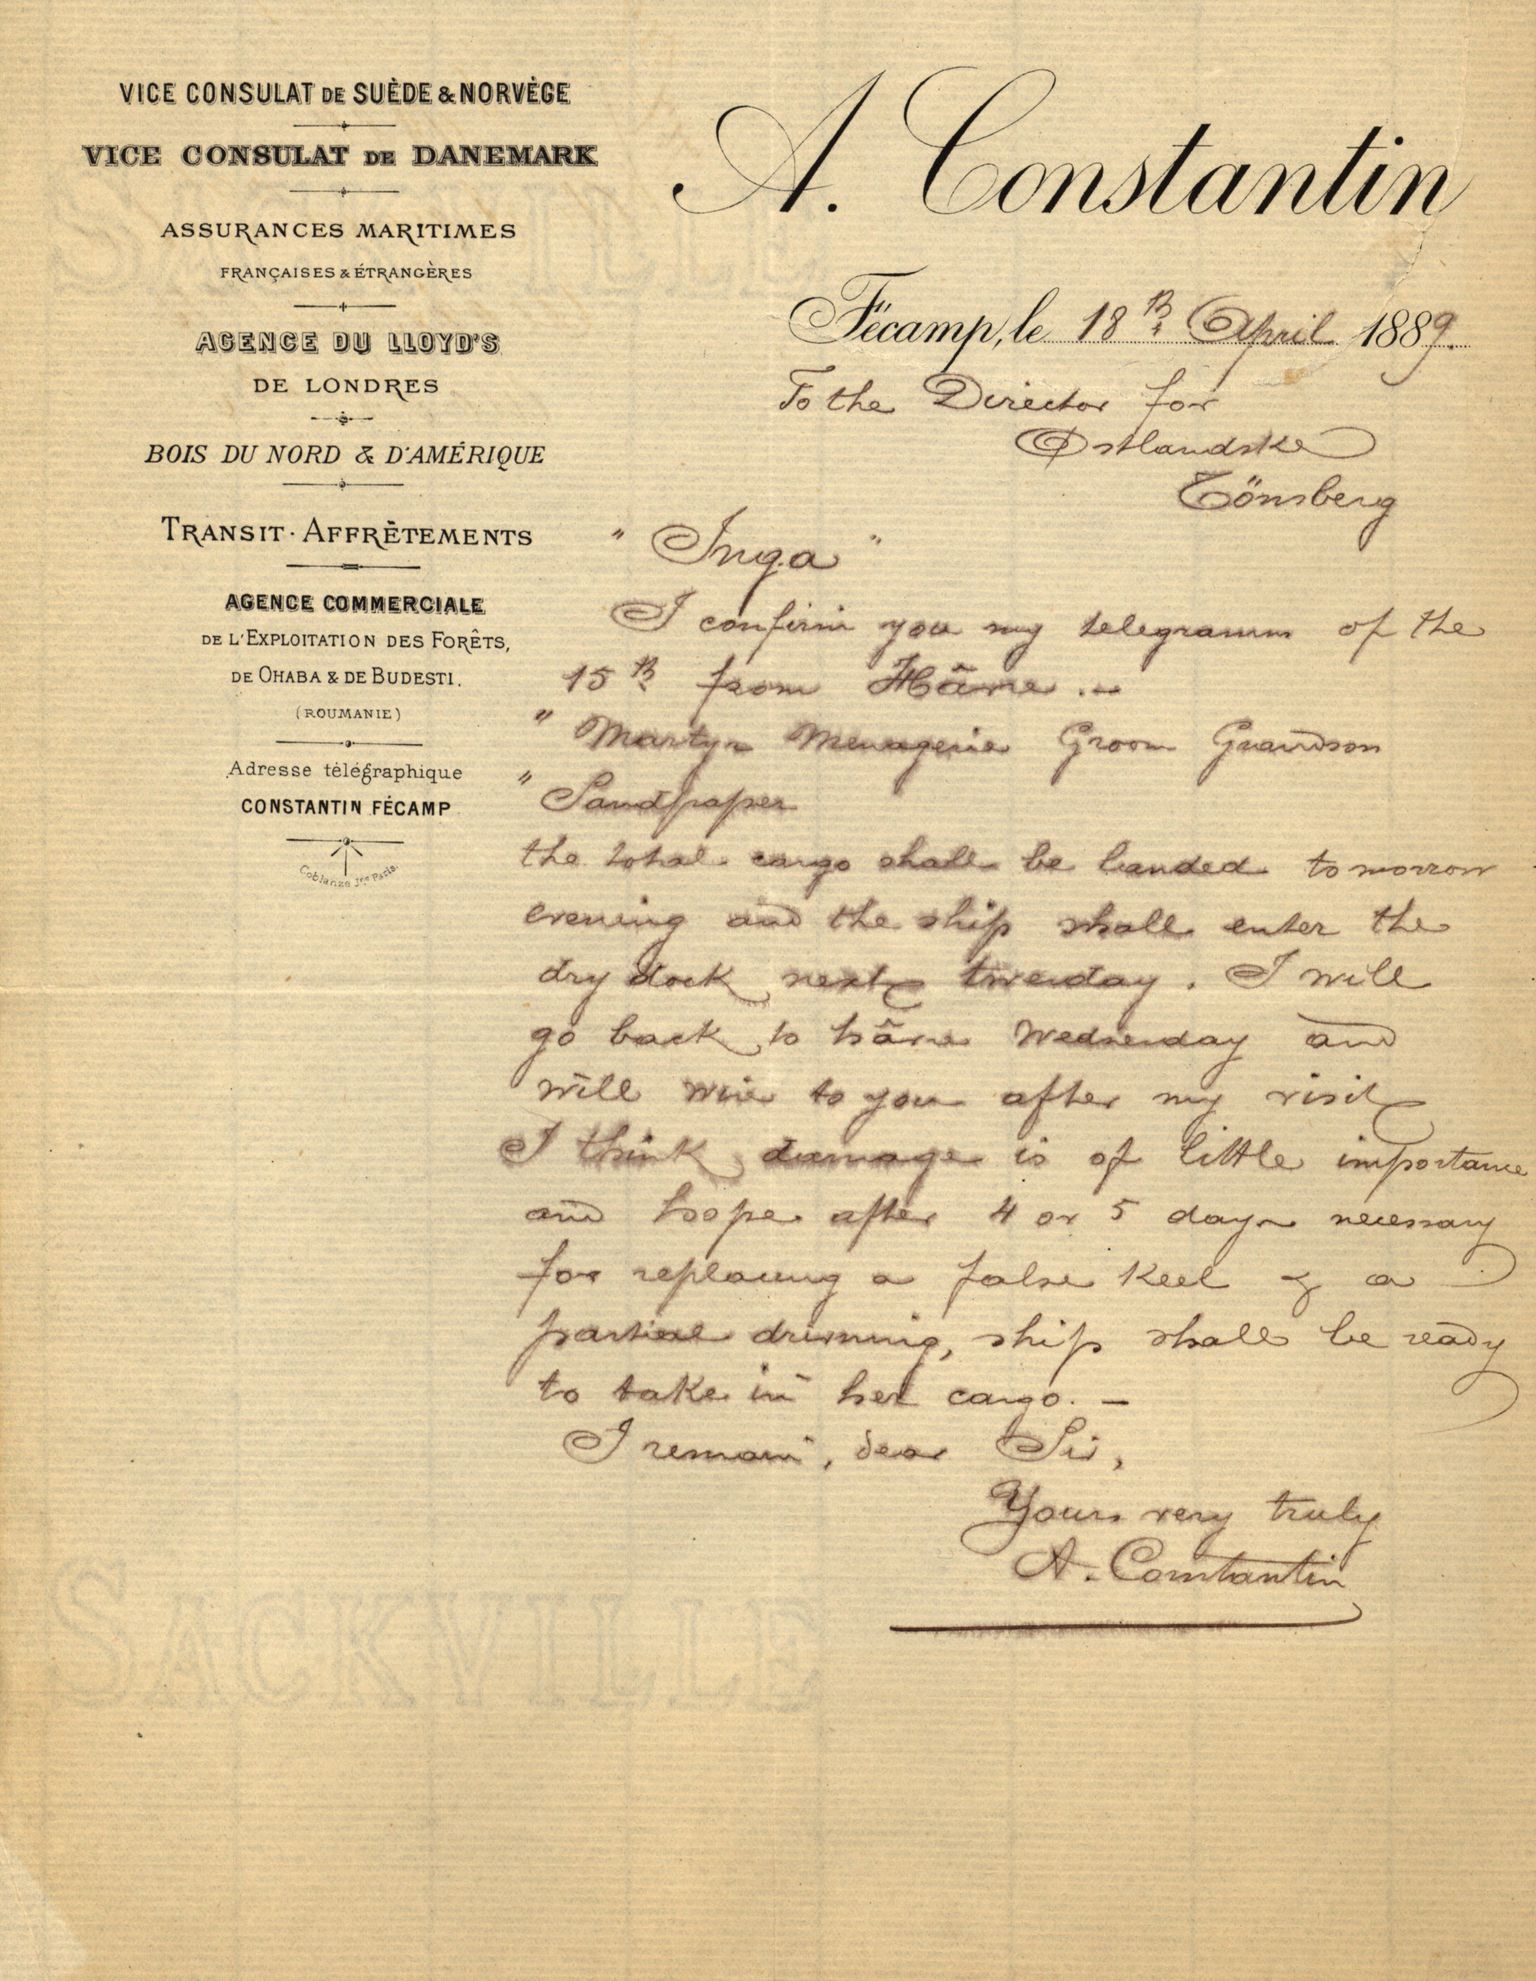 VICE CONSULAT DE SUÈDE & NORVÈGE
VICE CONSULAT DE DANEMARK
ASSURANCES MARITIMES
FRANÇAISES & ÉTRANGÈRES
AGENCE DU LLOYD'S
DE LONDRES
BOIS DU NORD & D'AMÉRIQUE
TRANSIT · AFFRÈTEMENTS
AGENCE COMMERCIALE
DE L'EXPLOITATION DES FORÊTS,
DE OHABA & DE BUDESTI.
(ROUMANIE)
Adresse télégraphique
CONSTANTIN FÉCAMP
Coblanze Jne Paris.
A. Constantin
Fécamp, le 18th April 1889.
To the Director for
Østlandske
Tönsberg
" Inga "
I confirm you my telegramm of the
15th from Hâvre. —
" Martyr Menagerie Groom Grandson
" Sandpaper
the total cargo shall be landed to morrow
evening and the ship shall enter the
dry dock next tweusday. I will
go back to hâvre Wednesday and
will wire to you after my visit
I think damage is of little importance
and hope after 4 or 5 days necessary
for replacing a false keel & a
partial driming, ship shall be ready
to take in her cargo. —
I remain, dear Sir,
Yours very truly
A. Constantin
SACKVILLE